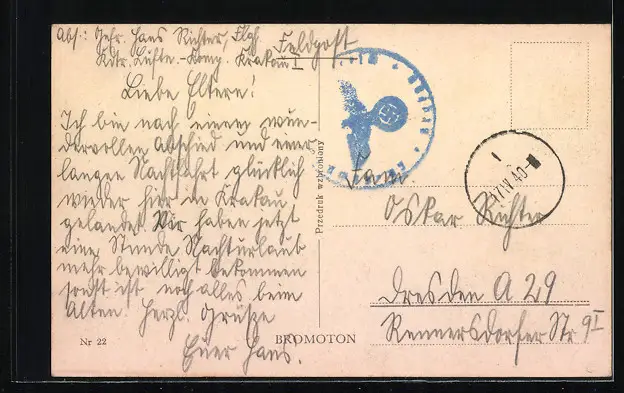 Abs: Gefr. Hans Richter, Flgh.
Kdtr. Lufttr.-Komp. Krakau I
Feldpost
Liebe Eltern!
Ich bin nach einem wun-
dervollen Abschied und einer
langen Nachtfahrt glücklich
wieder hier in Krakau
gelandet. Wir haben jetzt
eine Stunde Nachturlaub
mehr bewilligt bekommen
sonst ist noch alles beim
Alten. Herzl. Grüsze
Euer Hans.
Nr 22
Przedruk wzbroniony
BROMOTON
17.IV.40
Fam.
Oskar Richter
Dresden A 29
Rennersdorfer Str. 9 I